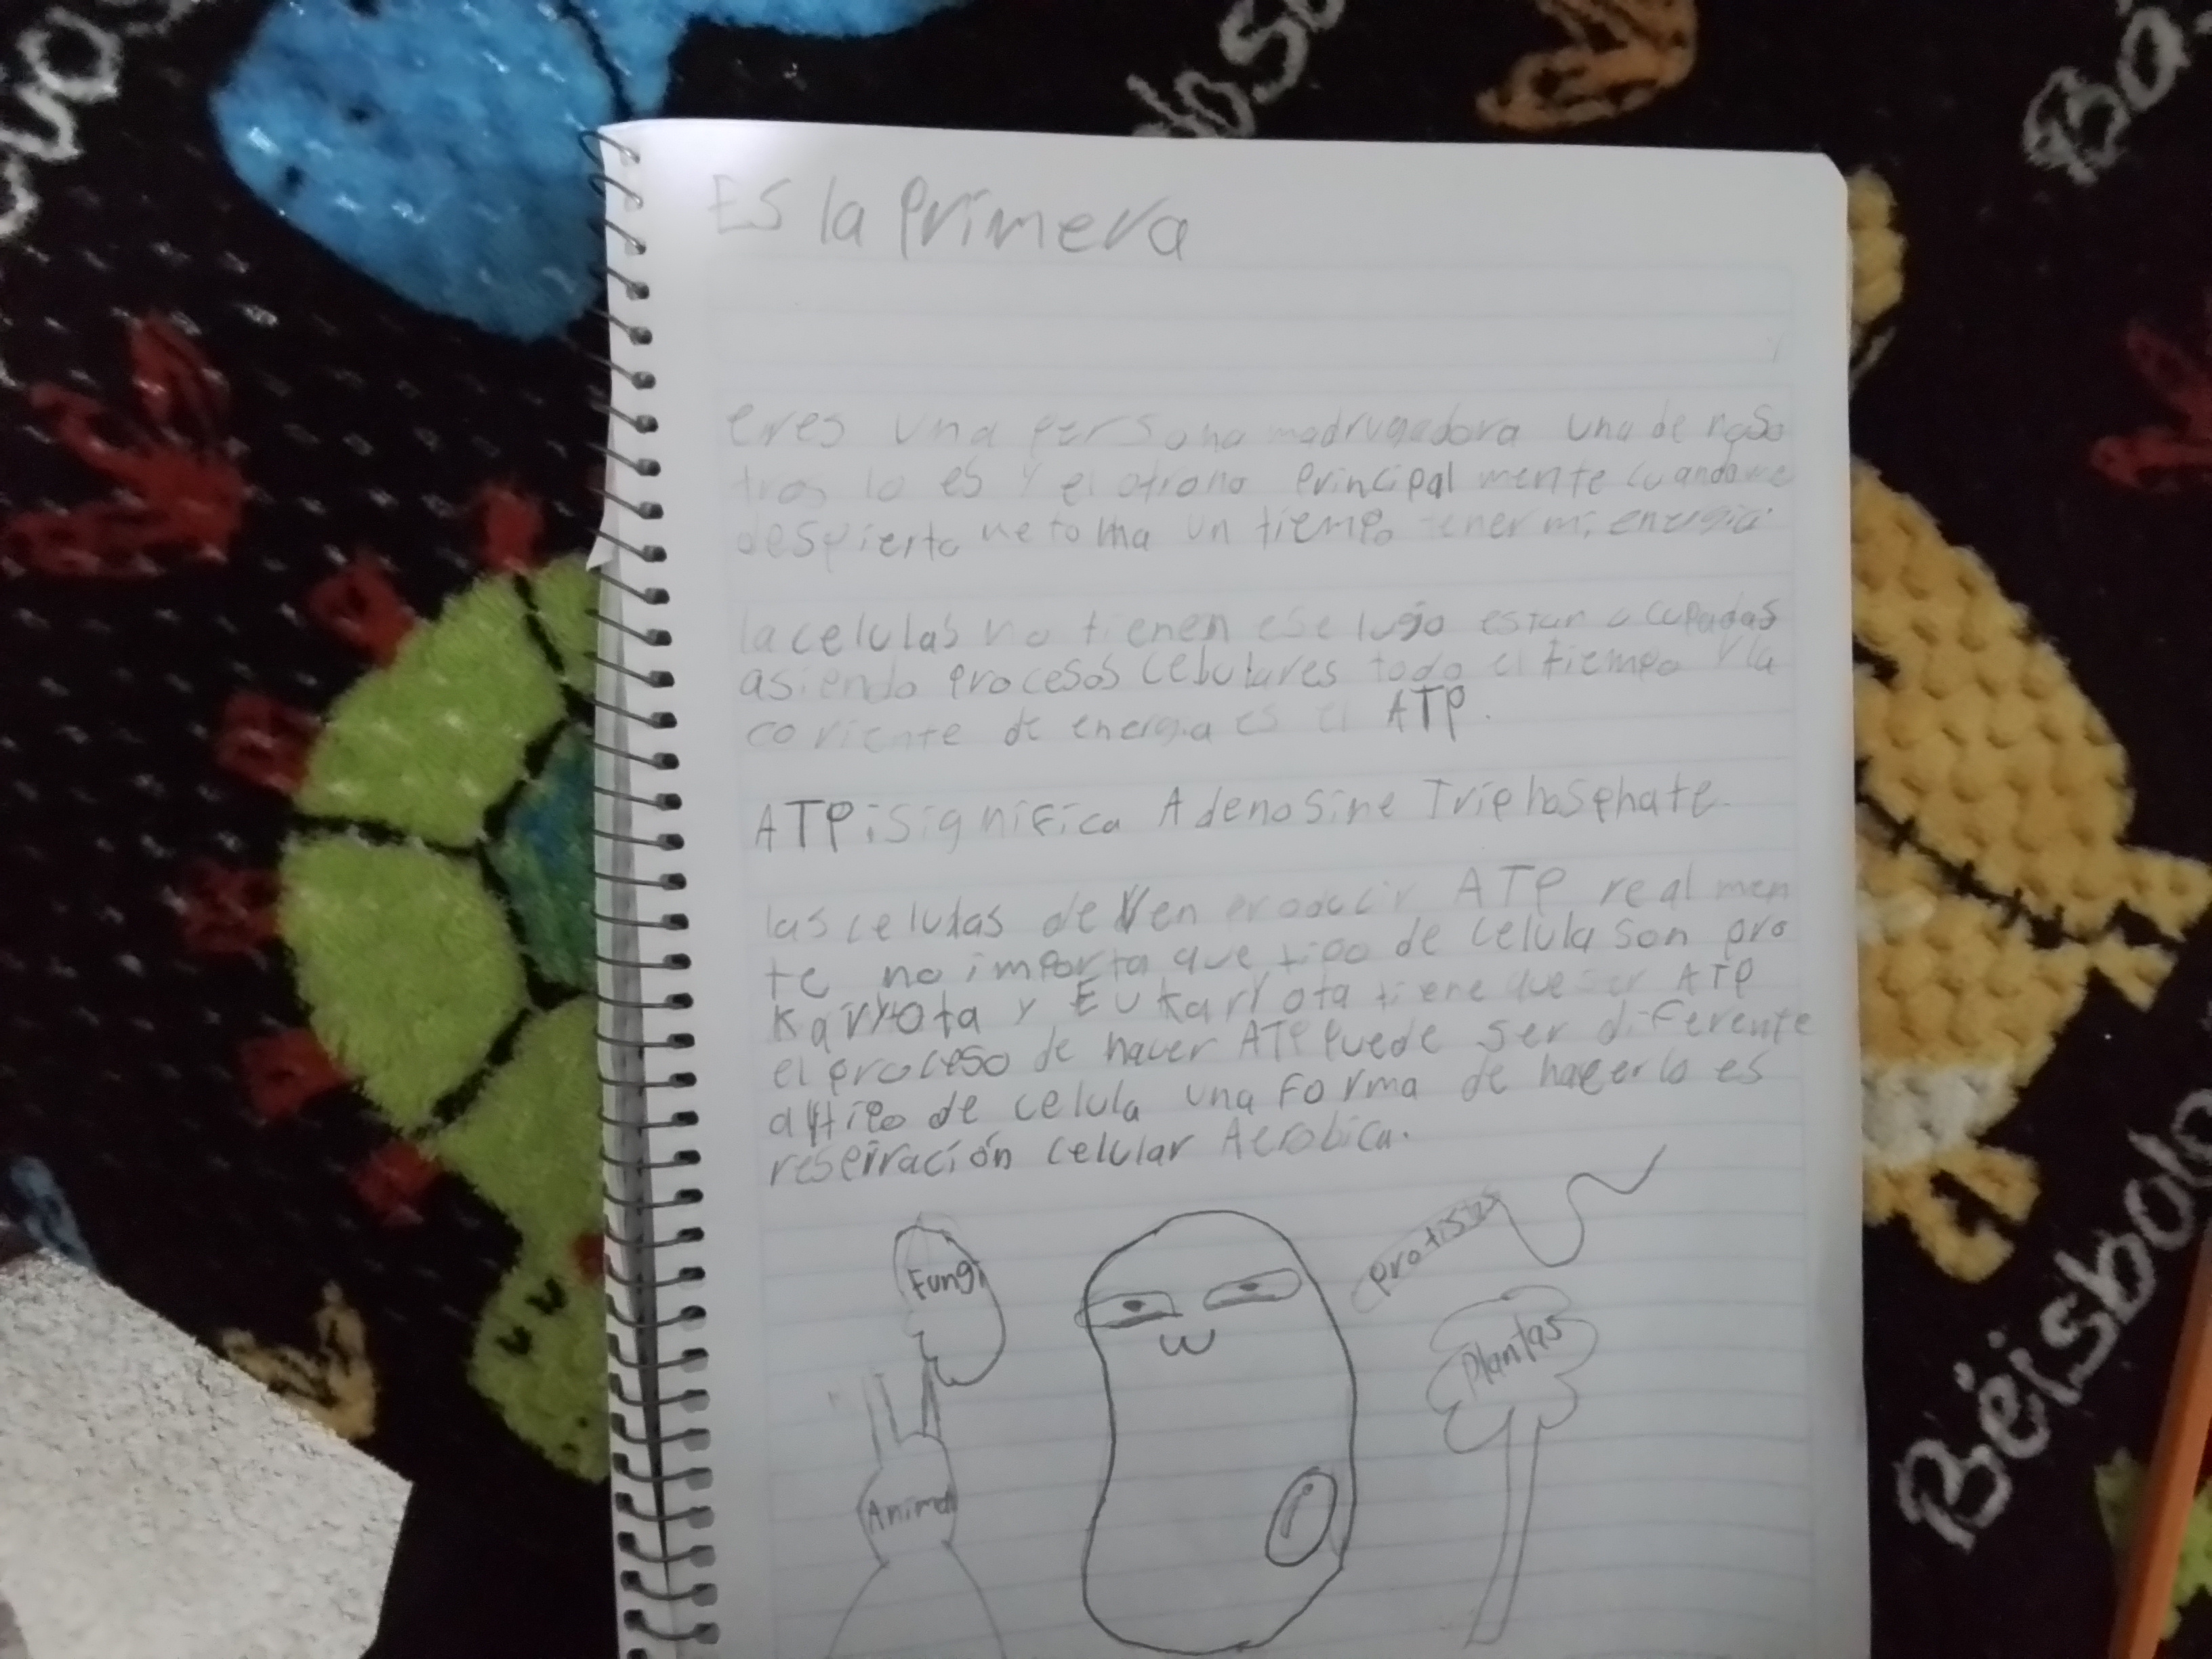 Es la primera
eres una persona madrugadora una de noso
tros lo es y el otro no principal mente cuando me
despierto me toma un tiempo tener mi energia
la celulas no tienen ese lujo estan ocupadas
asiendo procesos celulares todo el tiempo y la
coriente de energia es el ATP.
ATP: significa Adenosine Triphosphate.
las celulas deven producir ATP real men
te no importa que tipo de celula son pro
karyota y Eukaryota tiene que ATP
el proceso de hacer ATP puede ser diferente
al tipo de celula una forma de hacerlo es
respiración celular Aerobica.
Fungi
Protists
Plantas
Animal
Béisbol